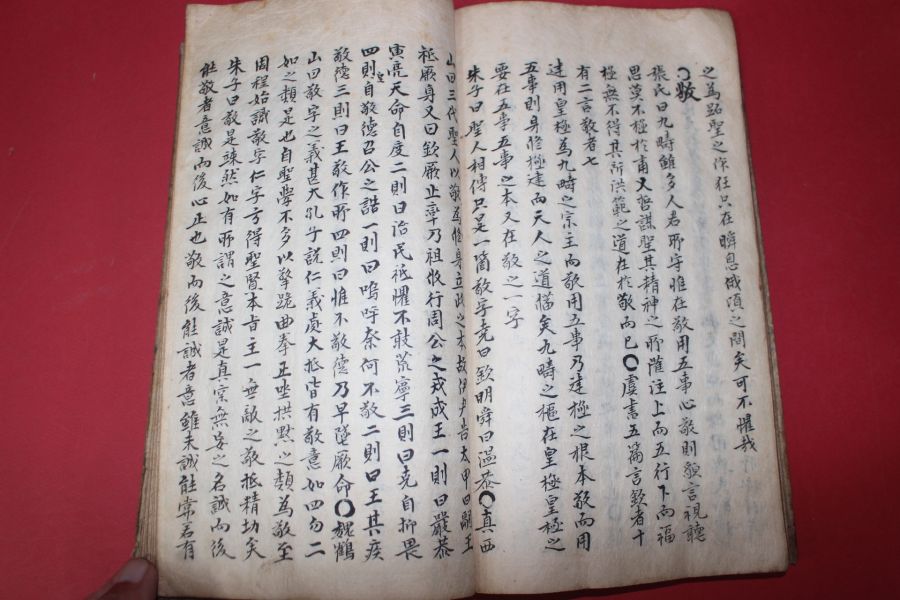 之爲蹈聖之作狂只在瞬息俄頃之間矣可不懼哉
○敬
張氏曰九疇雖多人君所守惟在敬用五事心敬則貌言視聽
思莫不極於肅乂哲謀聖其精神之所灌注上而五行下而福
極無不得其所洪範之道在於敬而已○虞書五篇言欽者十
有二言敬者七
建用皇極爲九疇之宗主而敬用五事乃建極之根本敬而用
五事則身修極建而天人之道備矣九疇之樞在皇極皇極之
要在五事五事之本又在敬之一字
朱子曰聖人相傳只是一箇敬字堯曰欽明舜曰溫恭○真西
山曰三代聖人以敬爲修身立政之本故伊尹告太甲曰嗣王
祗厥身又曰欽厥止率乃祖攸行周公之戒成王一則曰嚴恭
寅亮天命自度二則曰治民祗懼不敢荒寧三則曰克自抑畏
四則皇自敬德召公之誥一則曰嗚呼奈何不敬二則曰王其疾
敬德三則曰王敬作所四則曰惟不敬德乃早墜厥命○魏鶴
山曰敬字之義甚大孔子說仁義處大抵皆有敬意如四勿二
如之類是也自聖學不多以擎跽曲拳正坐拱默之類爲敬至
因程始識敬字仁字方得聖賢本旨主一無敵之敬抵精切矣
朱子曰敬是竦然如有所謂之意誠是真实無妄之名誠而後
能敬者意誠而後心正也敬而後能誠者意雖未誠能常若有